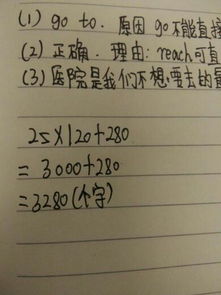 (1) go to. 原因 go 不能直接
(2) 正确. 理由: reach 可直
(3) 医院是我们不想要去的最
25×120+280
=3000+280
=3280(个字)